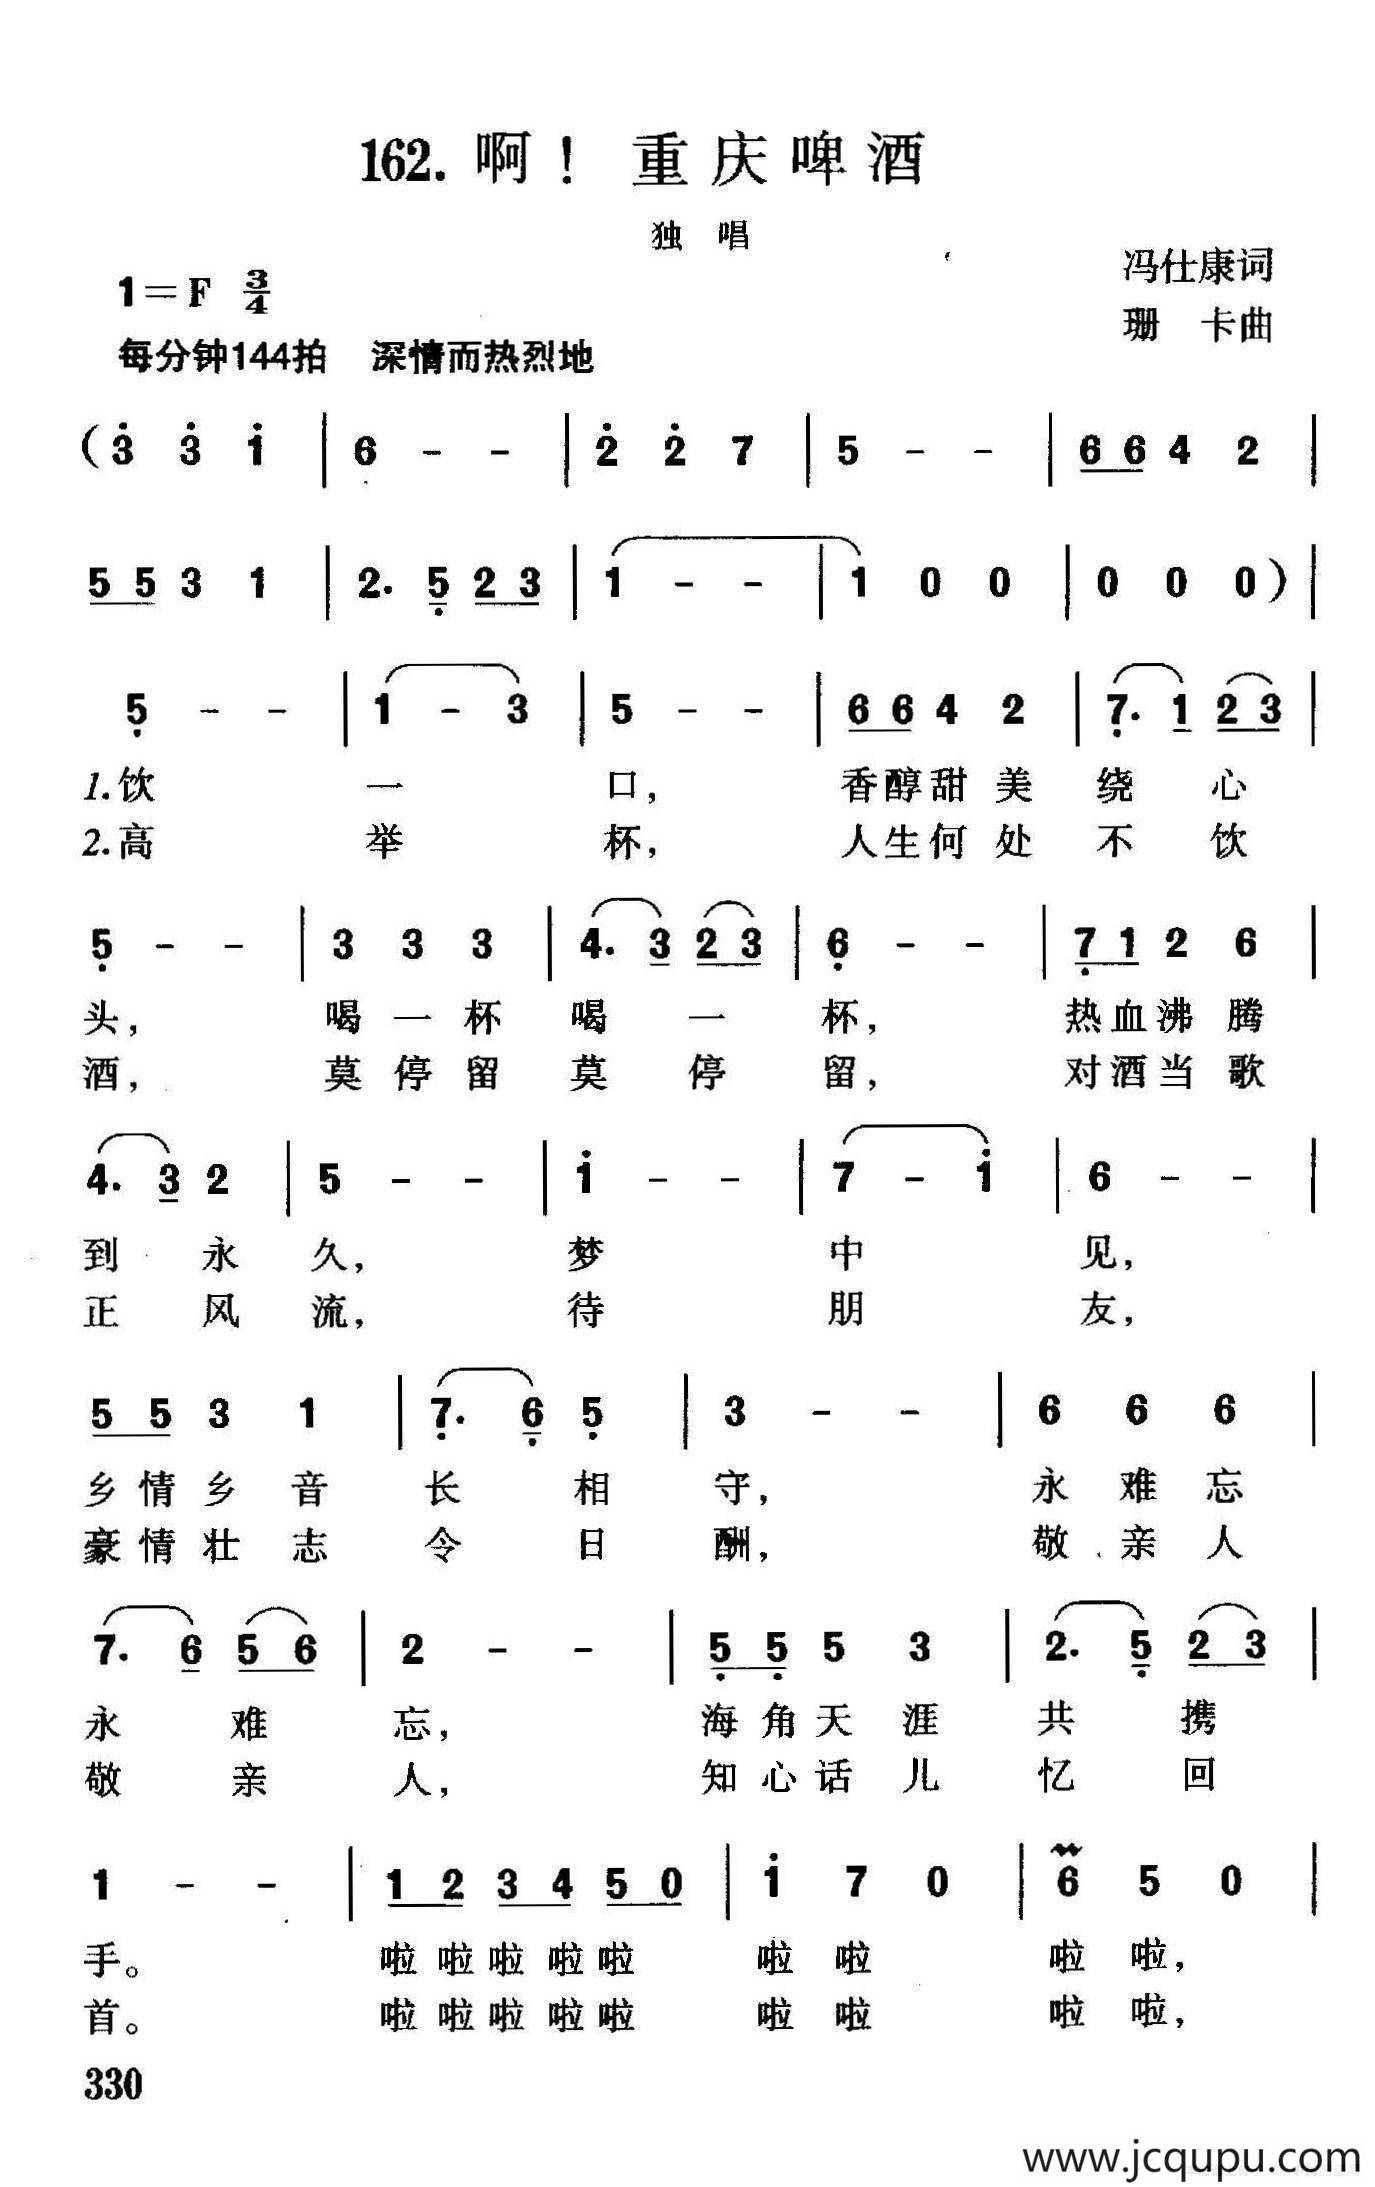 162. 啊！ 重庆啤酒
独 唱
冯仕康词
1=F 3/4
珊 卡曲
每分钟144拍 深情而热烈地
( 3̇ 3̇ 1̇ | 6 - - | 2̇ 2̇ 7 | 5 - - | 6 6 4 2 |
5 5 3 1 | 2. 5̣ 2 3 | 1 - - | 1 0 0 | 0 0 0 ) |
5̣ - - | 1 - 3 | 5 - - | 6 6 4 2 | 7̣. 1 2 3 |
1.饮 一 口， 香醇甜美 绕 心
2.高 举 杯， 人生何处 不 饮
5̣ - - | 3 3 3 | 4. 3 2 3 | 6̣ - - | 7̣ 1 2 6 |
头， 喝一杯 喝 一 杯， 热血沸腾
酒， 莫停留 莫 停 留， 对酒当歌
4. 3 2 | 5 - - | 1̇ - - | 7 - 1̇ | 6 - - |
到 永 久， 梦 中 见，
正 风 流， 待 朋 友，
5 5 3 1 | 7̣. 6̣ 5̣ | 3 - - | 6 6 6 |
乡情乡音 长 相 守， 永难忘
豪情壮志 令 日 酬， 敬亲人
7. 6 5 6 | 2 - - | 5̣ 5̣ 5 3 | 2. 5̣ 2 3 |
永 难 忘， 海角天涯 共 携
敬 亲 人， 知心话儿 忆 回
1 - - | 1 2 3 4 5 0 | 1̇ 7 0 | 6 5 0 |
手。 啦啦啦啦啦 啦 啦 啦 啦，
首。 啦啦啦啦啦 啦 啦 啦 啦，
330
www.jcqupu.com